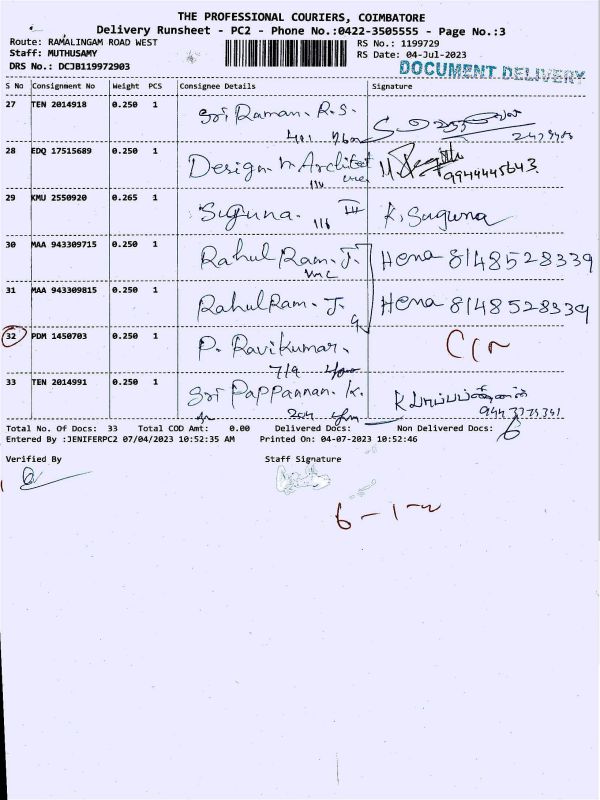 THE PROFESSIONAL COURIERS, COIMBATORE
Delivery Runsheet - PC2 - Phone No.:0422-3505555 - Page No.:3
Route: RAMALINGAM ROAD WEST RS No.: 1199729
Staff: MUTHUSAMY RS Date: 04-Jul-2023
DRS No.: DCJB119972903 DOCUMENT DELIVERY
S No Consignment No Weight PCS Consignee Details Signature
27 TEN 2014918 0.250 1 Sri Raman. R.S.
28 EDQ 17515689 0.250 1 Design 9944445643
29 KMU 2550920 0.265 1 Suguna. III K. Suguna
116
30 MAA 943309715 0.250 1 Rahul Ram. J. Hena 8148528339
31 MAA 943309815 0.250 1 Rahul Ram. J. Hena 8148528339
32 PDM 1450703 0.250 1 P. Ravikumar.
33 TEN 2014991 0.250 1 Sri Pappannan. K.
Total No. Of Docs: 33 Total COD Amt: 0.00 Delivered Docs: Non Delivered Docs: 6
Entered By :JENIFERPC2 07/04/2023 10:52:35 AM Printed On: 04-07-2023 10:52:46
Verified By Staff Signature